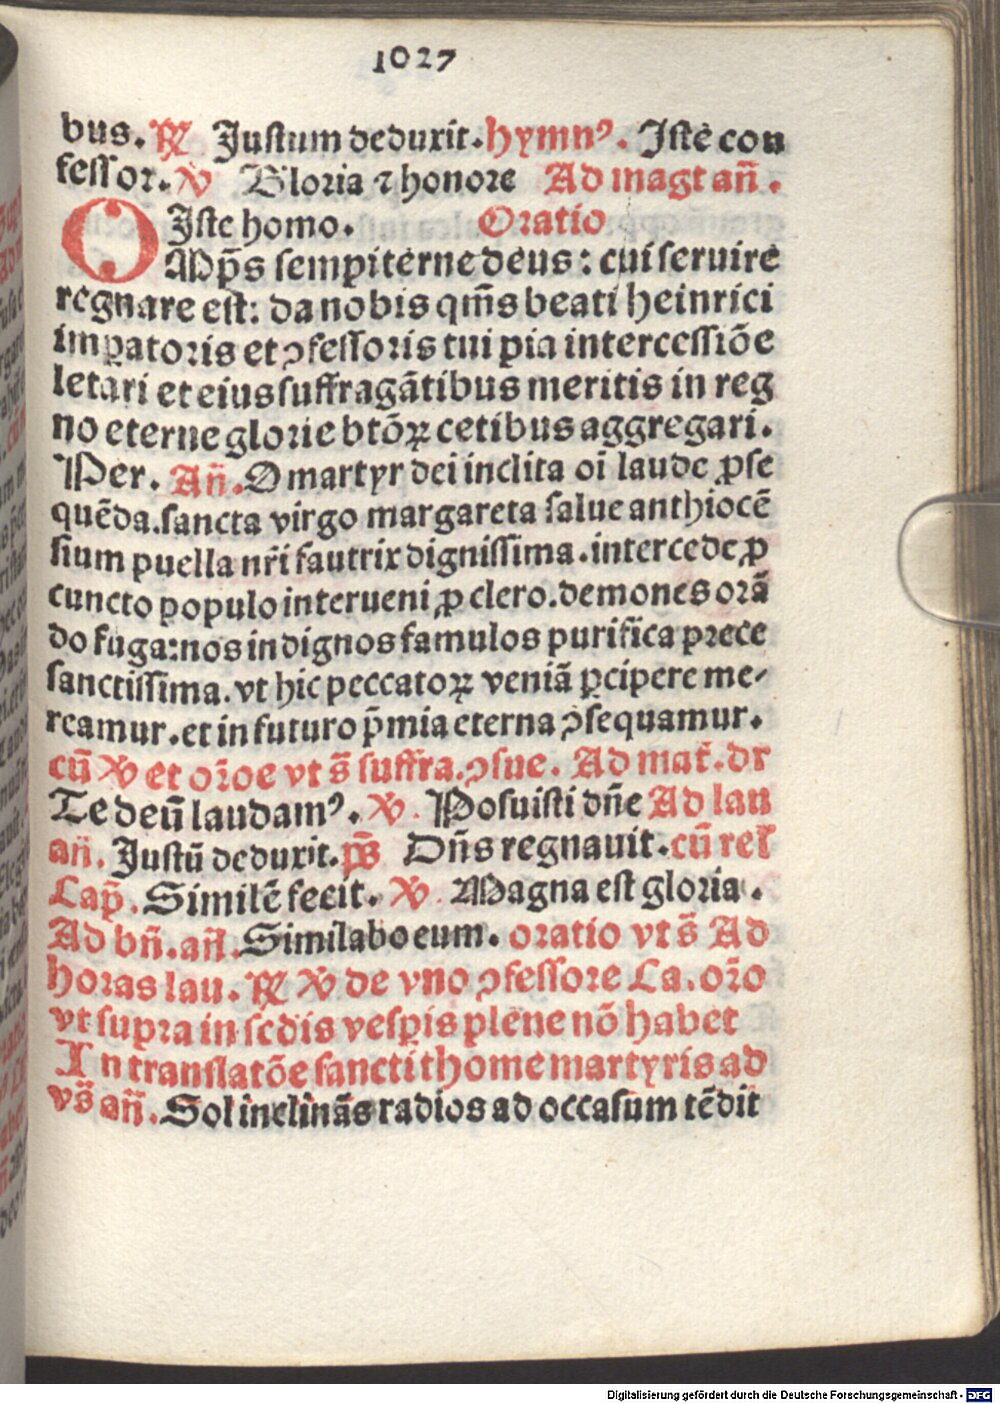 1027
bus. ℟ Justum deduxit. hymnꝰ. Iste con
fessor. ℣ Gloria ⁊ honore Ad magt añ.
Iste homo. Oratio
OMp̄s sempiterne deus: cui seruire
regnare est: da nobis qm̄s beati heinrici
imꝑatoris et ↄfessoris tui pia intercessiōe
letari et eius suffragātibus meritis in reg
no eterne glorie btōꝝ cetibus aggregari.
Per. Añ. O martyr dei inclita oī laude ꝓse
quēda. sancta virgo margareta salue anthiocē
sium puella nr̄i fautrix dignissima. intercede ꝓ
cuncto populo interueni ꝓ clero. demones orā
do fuga: nos indignos famulos purifica prece
sanctissima. vt hic peccatoꝝ veniā ꝑcipere me-
reamur. et in futuro p̄mia eterna ↄsequamur.
cū ℣ et or̄oe vt s̄ suffra. ↄsue. Ad mat̄. dr
Te deū laudamꝰ. ℣. Posuisti dn̄e Ad lau
añ. Justū deduxit. p̄s Dn̄s regnauit. cū rel̄
Cap̄. Similē fecit. ℣. Magna est gloria.
Ad bn̄. añ. Similabo eum. oratio vt s̄ Ad
horas lau. ℟ ℣ de vno ↄfessore Ca. or̄o
vt supra in scdis vesꝑis plene nō habet
In translatōe sancti thome martyris ad
vs̄ añ. Sol inclinās radios ad occasum tēdit
Digitalisierung gefördert durch die Deutsche Forschungsgemeinschaft - DFG